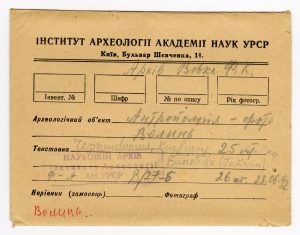 ІНСТИТУТ АРХЕОЛОГІЇ АКАДЕМІЇ НАУК УРСР
Київ, Бульвар Шевченка, 14.
Архів Вовка Ф.К.
Інвент. № Шифр № по опису Рік фотогр.
Археологічний об'єкт Антропологія - фото
Волынь
Текстовка
25 шт.
НАУКОВИЙ АРХІВ
Ф-А АН УРСР В/27-Б 26 шт.
Керівник (замовець) Фотограф
Волинь.